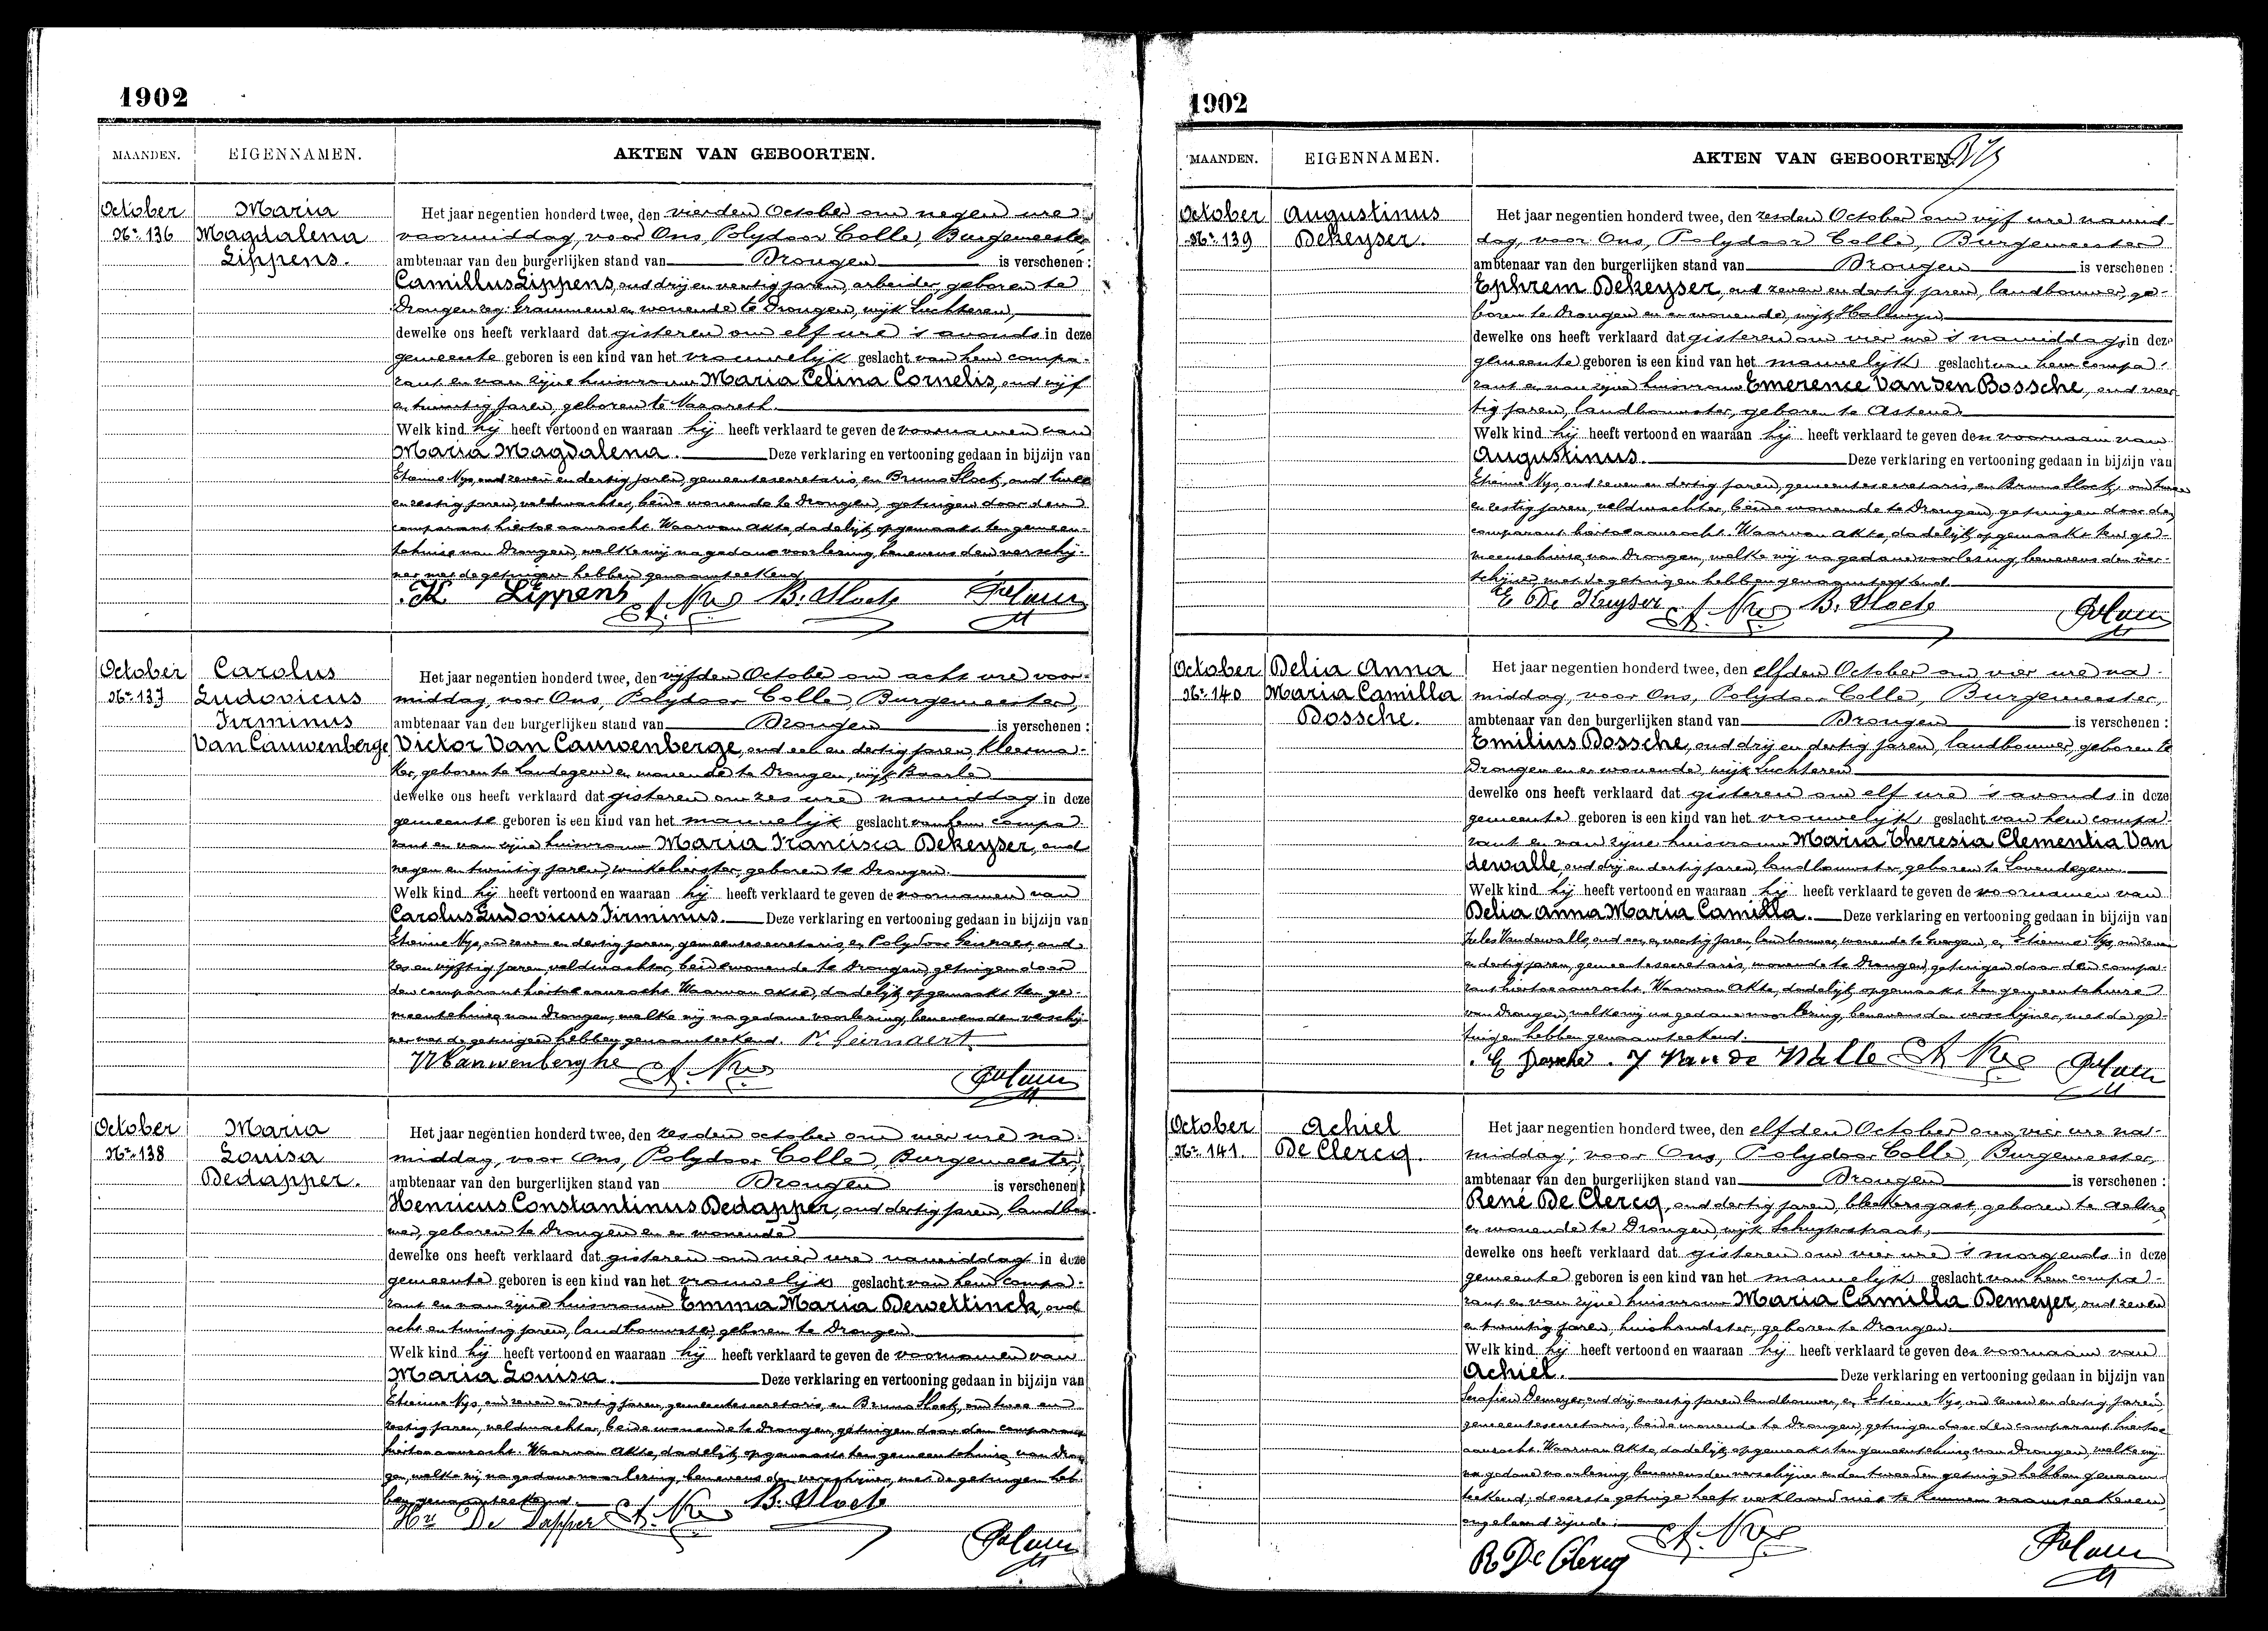 1902
MAANDEN. EIGENNAMEN. AKTEN VAN GEBOORTEN.
October
Nr. 136
Maria
Magdalena
Lippens.
Het jaar negentien honderd twee, den vierden October om negen ure
voormiddag, voor Ons, Polydoor Colle, Burgemeester
ambtenaar van den burgerlijken stand van Drongen is verschenen :
Camillus Lippens, oud drij en veertig jaren, arbeider, geboren te
Drongen en wonende te Drongen, wijk Luchteren,
dewelke ons heeft verklaard dat gisteren om elf ure 's avonds in deze
gemeente geboren is een kind van het vrouwelijk geslacht van hem compa-
rant en van zijne huisvrouw Maria Celina Cornelis, oud vijf
en twintig jaren, geboren te Nazareth.
Welk kind hij heeft vertoond en waaraan hij heeft verklaard te geven de voornamen van
Maria Magdalena. Deze verklaring en vertooning gedaan in bijzijn van
Etienne Nys, oud zeven en dertig jaren, gemeentesecretaris, en Bruno Slock, oud twee
en zestig jaren, veldwachter, beide wonende te Drongen, getuigen door den
comparant hiertoe aanzocht. Waarvan akte, dadelijk opgemaakt ten gemeen-
tehuize van Drongen, welke wij na gedane voorlezing, benevens den verschij-
ner met de getuigen hebben genaamteekend.
K Lippens Et. Nys B. Slock
October
Nr. 137
Carolus
Ludovicus
Firminus
Van Cauwenberge
Het jaar negentien honderd twee, den vijfden October om acht ure voor-
middag voor Ons, Polydoor Colle, Burgemeester,
ambtenaar van den burgerlijken stand van Drongen is verschenen :
Victor Van Cauwenberge, oud een en dertig jaren, kleerma-
ker, geboren te Landegem en wonende te Drongen, wijk Baarle
dewelke ons heeft verklaard dat gisteren om zes ure namiddag in deze
gemeente geboren is een kind van het mannelijk geslacht van hem compa-
rant en van zijne huisvrouw Maria Francisca Dekeyser, oud
negen en twintig jaren, winkelierster, geboren te Drongen.
Welk kind hij heeft vertoond en waaraan hij heeft verklaard te geven de voornamen van
Carolus Ludovicus Firminus. Deze verklaring en vertooning gedaan in bijzijn van
Etienne Nys, oud zeven en dertig jaren, gemeentesecretaris, en Polydoor Geirnaert, oud
zes en vijftig jaren, veldwachter, beide wonende te Drongen, getuigen door
den comparant hiertoe aanzocht. Waarvan akte, dadelijk opgemaakt ten ge-
meentehuize van Drongen, welke wij na gedane voorlezing, benevens den verschij-
ner met de getuigen hebben genaamteekend. P. Geirnaert
VVCauwenberghe Et. Nys
October
Nr. 138
Maria
Louisa
Dedapper.
Het jaar negentien honderd twee, den zesden october om vier ure na-
middag, voor Ons, Polydoor Colle, Burgemeester,
ambtenaar van den burgerlijken stand van Drongen is verschenen :
Henricus Constantinus Dedapper, oud dertig jaren, landbou-
wer, geboren te Drongen en er wonende
dewelke ons heeft verklaard dat gisteren om vier ure namiddag in deze
gemeente geboren is een kind van het vrouwelijk geslacht van hem compa-
rant en van zijne huisvrouw Emma Maria Dewettinck, oud
acht en twintig jaren, landbouwster, geboren te Drongen.
Welk kind hij heeft vertoond en waaraan hij heeft verklaard te geven de voornamen van
Maria Louisa. Deze verklaring en vertooning gedaan in bijzijn van
Etienne Nys, oud zeven en dertig jaren, gemeentesecretaris, en Bruno Slock, oud twee en
zestig jaren, veldwachter, beide wonende te Drongen, getuigen door den comparant
hiertoe aanzocht. Waarvan akte, dadelijk opgemaakt ten gemeentehuize van Dron-
gen, welke wij na gedane voorlezing, benevens den verschijner, met de getuigen heb-
ben genaamteekend.
Hri De Dapper Et. Nys B. Slock
1902
MAANDEN. EIGENNAMEN. AKTEN VAN GEBOORTEN.
October
Nr. 139
Augustinus
Dekeyser.
Het jaar negentien honderd twee, den zesden October om vijf ure namid-
dag, voor Ons, Polydoor Colle, Burgemeester
ambtenaar van den burgerlijken stand van Drongen is verschenen :
Ephrem Dekeyser, oud zeven en dertig jaren, landbouwer, ge-
boren te Drongen en er wonende, wijk Halewyn
dewelke ons heeft verklaard dat gisteren om vier ure 's namiddag, in deze
gemeente geboren is een kind van het mannelijk geslacht van hem compa-
rant en van zijne huisvrouw Emerence Van den Bossche, oud veer-
tig jaren, landbouwster, geboren te Astene.
Welk kind hij heeft vertoond en waaraan hij heeft verklaard te geven den voornaam van
Augustinus. Deze verklaring en vertooning gedaan in bijzijn van
Etienne Nys, oud zeven en dertig jaren, gemeentesecretaris, en Bruno Slock, oud twee
en zestig jaren, veldwachter, beide wonende te Drongen, getuigen door den
comparant hiertoe aanzocht. Waarvan akte, dadelijk opgemaakt ten ge-
meentehuize van Drongen, welke wij na gedane voorlezing, benevens den ver-
schijner, met de getuigen hebben genaamteekend.
E De Keyser Et. Nys B. Slock
October
Nr. 140
Delia Anna
Maria Camilla
Bossche.
Het jaar negentien honderd twee, den elfden October om vier ure na-
middag, voor Ons, Polydoor Colle, Burgemeester,
ambtenaar van den burgerlijken stand van Drongen is verschenen :
Emilius Bossche, oud drij en dertig jaren, landbouwer, geboren te
Drongen en er wonende, wijk Luchteren
dewelke ons heeft verklaard dat gisteren om elf ure 's avonds in deze
gemeente geboren is een kind van het vrouwelijk geslacht van hem compa-
rant en van zijne huisvrouw Maria Theresia Clementia Van
dewalle, oud drij en dertig jaren, landbouwster, geboren te Lovendegem.
Welk kind hij heeft vertoond en waaraan hij heeft verklaard te geven de voornamen van
Delia Anna Maria Camilla. Deze verklaring en vertooning gedaan in bijzijn van
Jules Vandewalle, oud een en veertig jaren, landbouwer, wonende te Evergem, en Etienne Nys, oud zeven
en dertig jaren, gemeentesecretaris, wonende te Drongen, getuigen door den compa-
rant hiertoe aanzocht. Waarvan akte, dadelijk opgemaakt ten gemeentehuize
van Drongen, welke wij na gedane voorlezing, benevens den verschijner, met de ge-
tuigen hebben genaamteekend.
E Bossche. J Van de Walle Et Nys
October
Nr. 141
Achiel
De Clercq.
Het jaar negentien honderd twee, den elfden October om vier ure na-
middag, voor Ons, Polydoor Colle, Burgemeester,
ambtenaar van den burgerlijken stand van Drongen is verschenen :
René De Clercq, oud dertig jaren, bleekersgast, geboren te Aeltre
en wonende te Drongen, wijk Schuyterstraat,
dewelke ons heeft verklaard dat gisteren om vier ure 's morgends in deze
gemeente geboren is een kind van het mannelijk geslacht van hem compa-
rant en van zijne huisvrouw Maria Camilla Demeyer, oud zeven
en twintig jaren, huishoudster, geboren te Drongen.
Welk kind hij heeft vertoond en waaraan hij heeft verklaard te geven den voornaam van
Achiel. Deze verklaring en vertooning gedaan in bijzijn van
Serafien Demeyer, oud drij en zestig jaren, landbouwer, en Etienne Nys, oud zeven en dertig jaren,
gemeentesecretaris, beide wonende te Drongen, getuigen door den comparant hiertoe
aanzocht. Waarvan akte, dadelijk opgemaakt ten gemeentehuize van Drongen, welke wij
na gedane voorlezing benevens den verschijner en den tweeden getuige hebben genaam-
teekend; de eerste getuige heeft verklaard niet te kunnen naamteekenen
ongeleerd zijnde.
R De Clercq Et. Nys